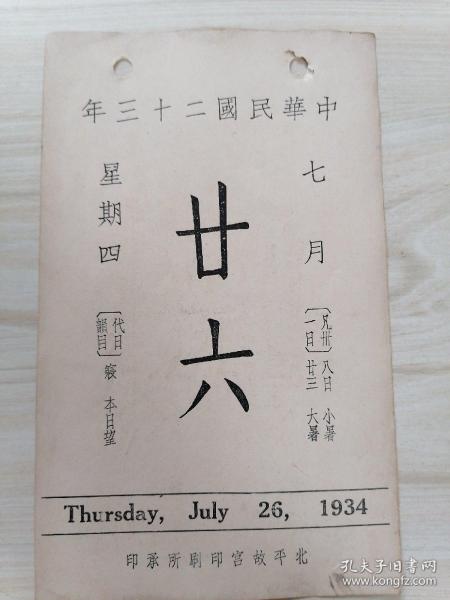 中華民國二十三年
七月
〔凡卅一日〕
八日 小暑
廿三 大暑
廿六
星期四
〔代日韻目〕寢 本日望
Thursday, July 26, 1934
北平故宮印刷所承印
孔夫子旧书网
www.kongfz.com